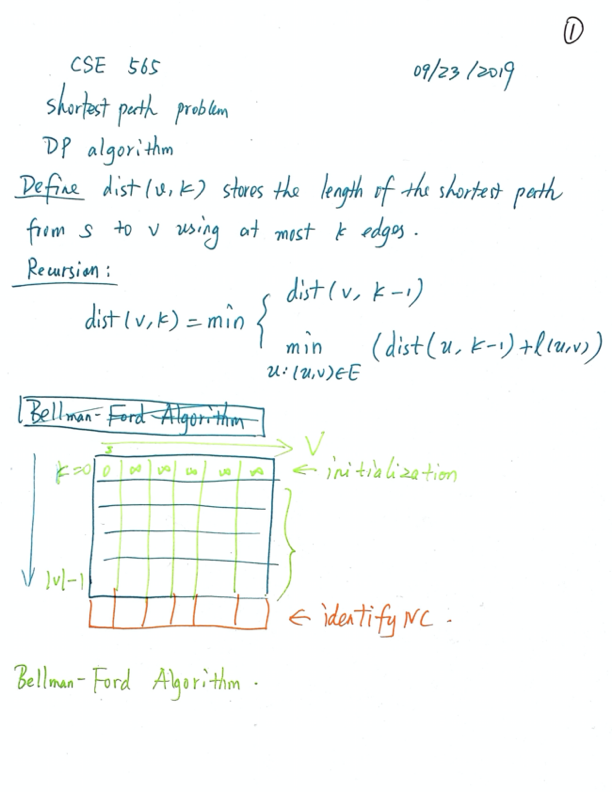 ①
CSE 565 09/23/2019
shortest path problem
DP algorithm
Define dist(v, k) stores the length of the shortest path
from s to v using at most k edges.
Recursion:
dist(v, k-1)
dist(v, k) = min {
min (dist(u, k-1) + l(u,v))
u:(u,v)∈E
Bellman-Ford Algorithm
s V
k=0 0 ∞ ∞ ∞ ∞ ∞ ← initialization
|V|-1
← identify NC.
Bellman-Ford Algorithm.